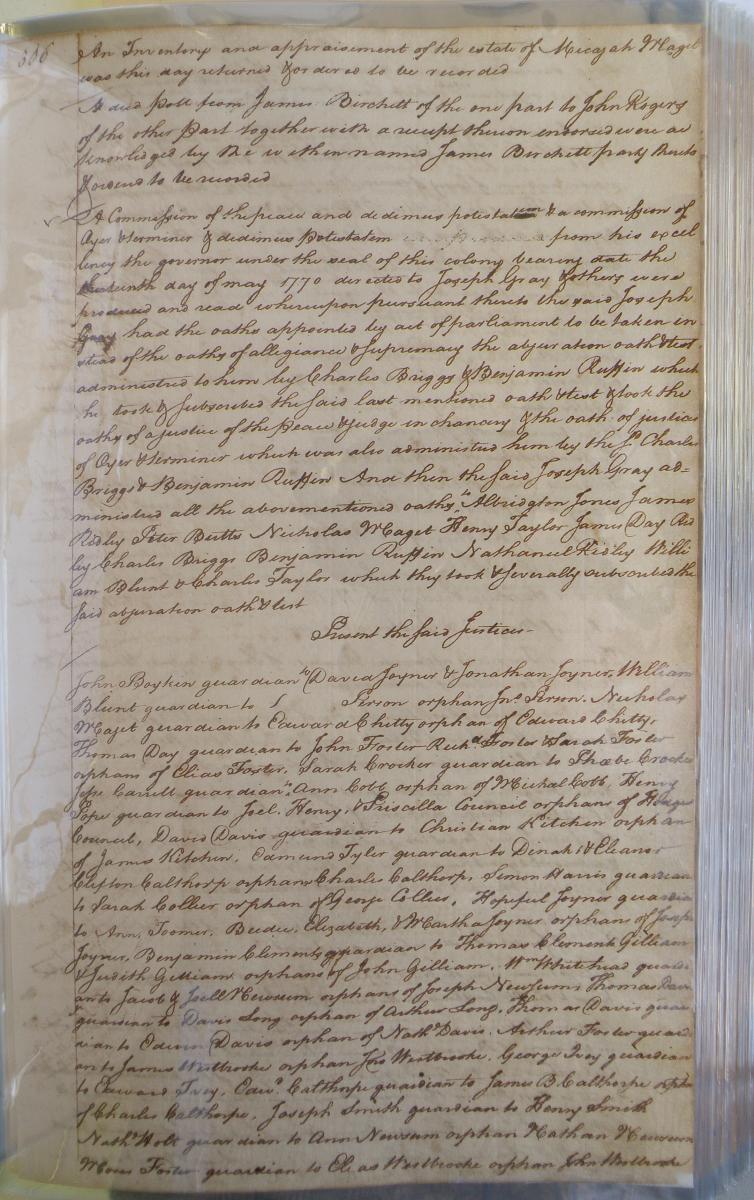 An Inventory and appraisement of the estate of Micajah
was this day returned & ordered to be recorded
A deed poll from James Birchett of the one part to John Rogers
of the other part together with a receipt thereon endorsed were ac
knowledged by the within named James Birchett party thereto
& ordend to be recorded
A Commission of the peace and dedimus potestatem & a commission of
Oyer & terminer & dedimus Potestatem from his excel
lency the governor under the seal of this colony bearing date the
day of may 1770 directed to Joseph Gray & others were
produced and read whereupon pursuant thereto the said Joseph
Gray had the oaths appointed by act of parliament to be taken in
stead of the oaths of allegiance & supremacy the abjuration oath & test
administred to him by Charles Briggs & Benjamin Ruffin which
he took & subscribed the said last mentioned oath & test & took the
oaths of a justice of the peace & judge in chancery & the oath of justice
of Oyer & terminer which was also administred him by the sd. Charles
Briggs & Benjamin Ruffin And then the said Joseph Gray ad=
ministred all the abovementioned oaths to Albridgton Jones James
Ridley Peter Butts Nicholas Maget Henry Taylor James Day Rid
ley Charles Briggs Benjamin Ruffin Nathaniel Ridley Willi
am Blunt & Charles Taylor which they took & severally subscribed the
said abjuration oath & test
Present the said Justices
John Boykin guardian to David Joyner & Jonathan Joyner, William
Blunt guardian to Person orphan Jno. Person. Nicholas
Maget guardian to Edward Chitty orphan of Edward Chitty,
Thomas Day guardian to John Foster Richd. Foster & Sarah Foster
orphans of Elias Foster, Sarah Crocker guardian to Phœbe Crocker
Jesse Carrell guardian to Ann Cobb orphan of Michal Cobb, Henry
Pope guardian to Joel, Henry, & Priscilla Council orphans of
Council, David Davis guardian to Christian Kitchen orphan
of James Kitchen, Edmund Tyler guardian to Dinah & Eleanor
Clifton Calthorp orphans Charles Calthorp, Simon Harris guardian
to Sarah Collier orphan of George Collier, Hopeful Joyner guardian
to Ann, Toomer, Beedee, Elizabeth, & Martha Joyner orphans of Joseph
Joyner, Benjamin Clements guardian to Thomas Clement Gilliam
& Judith Gilliam orphans of John Gilliam, Wm. Whitehead guardi
an to Jacob & Joell Newsum orphans of Joseph Newsum, Thomas Davis
guardian to Davis Long orphan of Arthur Long, Thomas Davis guar
dian to Edwin Davis orphan of Nathl. Davis. Arthur Foster guardi
an to James Westbrooke orphan Jno Westbrooke, George Ivey guardian
to Edward Ivey, Edwd. Calthorpe guardian to James B. Calthorpe orphan
of Charles Calthorpe, Joseph Smith guardian to Henry Smith
Nathl. Holt guardian to Ann Newsum orphan Nathan Newsum
Moses Foster guardian to Elias Westbrooke orphan John Westbrooke